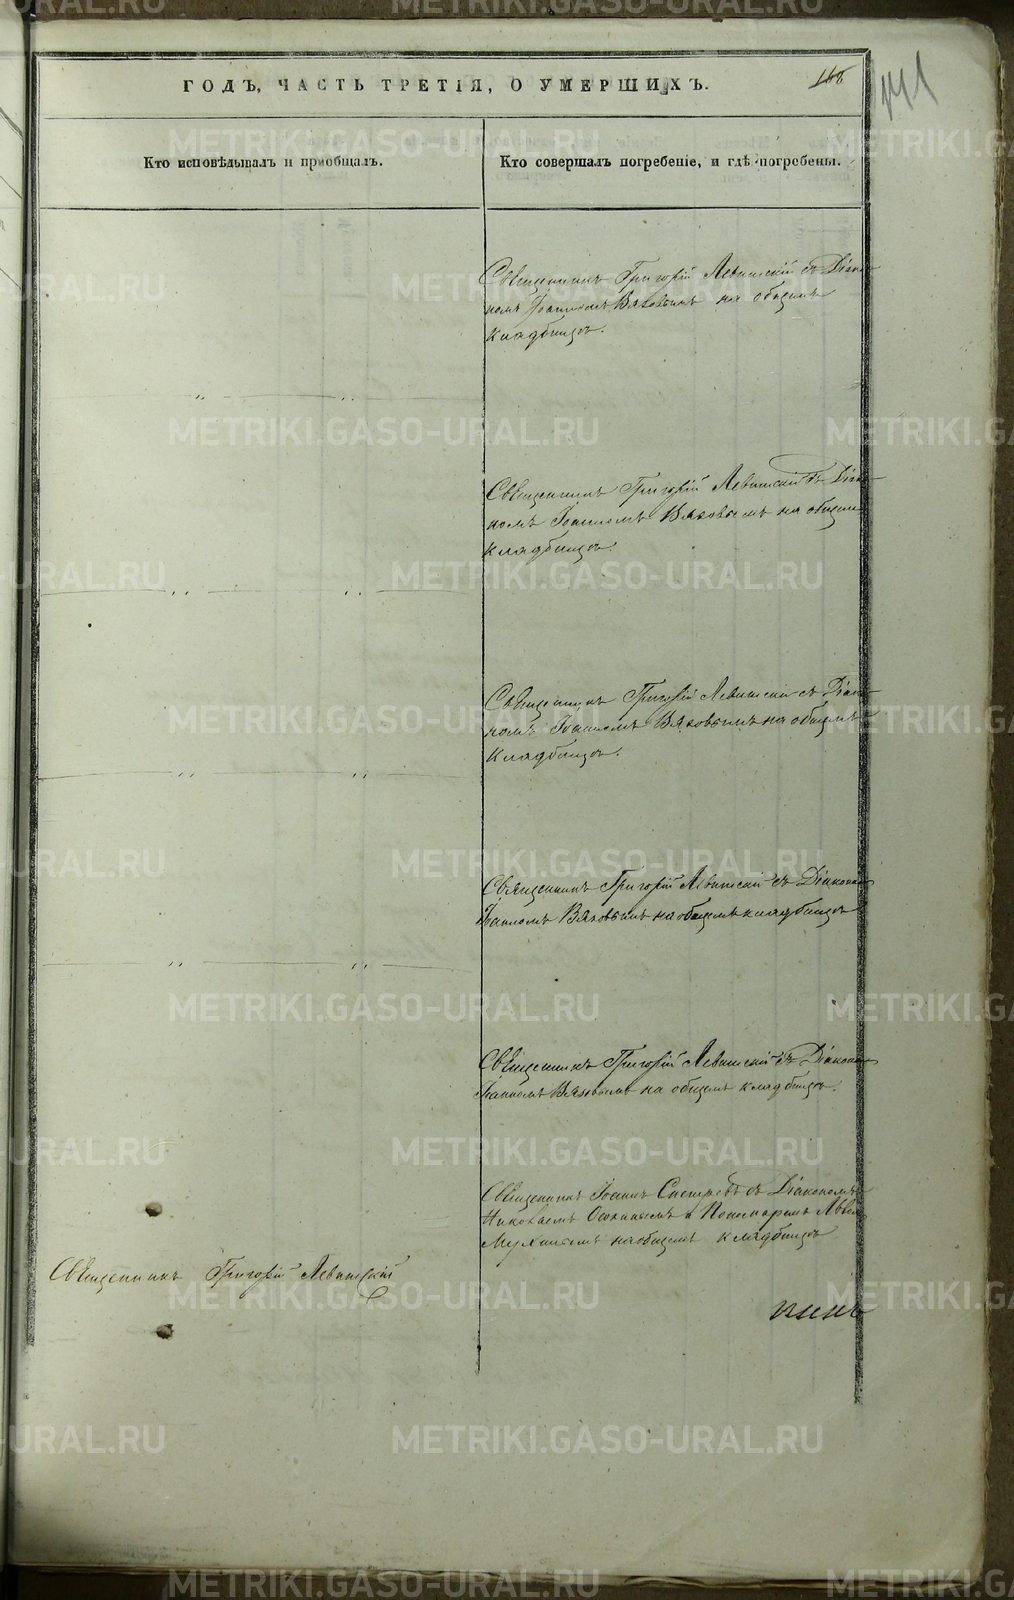 ГОДЪ, ЧАСТЬ ТРЕТІЯ, О УМЕРШИХЪ.
168
141
Кто исповѣдывалъ и пріобщалъ.
Кто совершалъ погребеніе, и гдѣ погребены.
Священникъ Григорій Левитскій съ Діако-
номъ Іоанномъ Вяховымъ на общемъ
кладбищѣ.
Священникъ Григорій Левитскій съ Діако-
номъ Іоанномъ Вяховымъ на общемъ
кладбищѣ.
Священникъ Григорій Левитскій съ Діако-
номъ Іоанномъ Вяховымъ на общемъ
кладбищѣ.
Священникъ Григорій Левитскій съ Діакономъ
Іоанномъ Вяховымъ на общемъ кладбищѣ
Священникъ Григорій Левитскій съ Діакономъ
Іоанномъ Вяховымъ на общемъ кладбищѣ.
Священникъ Іоаннъ съ Діакономъ
Николаемъ и Пономаремъ
на общемъ кладбищѣ
Священникъ Григорій Левитскій
METRIKI.GASO-URAL.RU